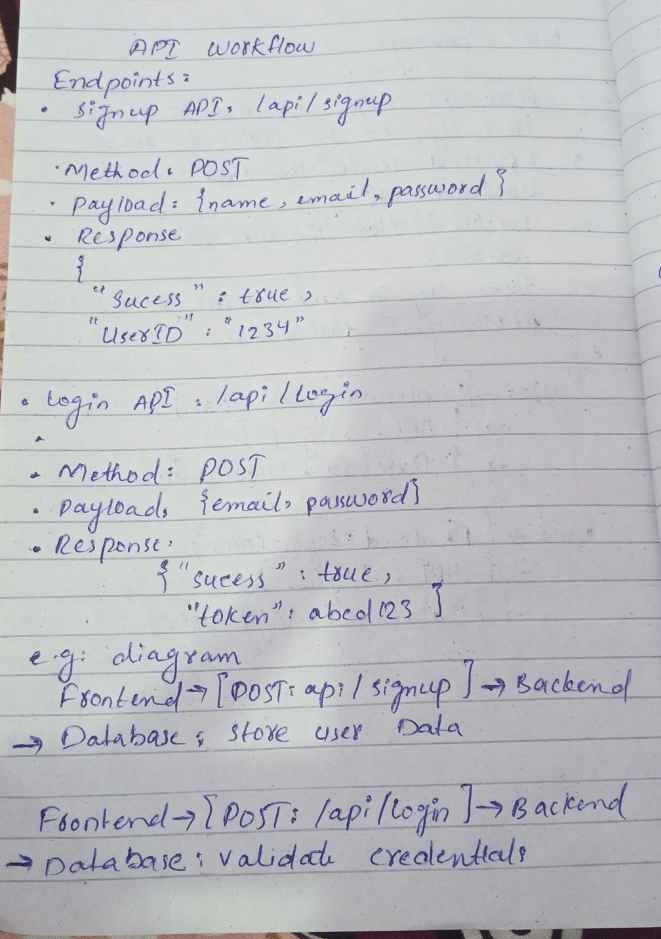 API Workflow
Endpoints:
• Signup API: /api/signup
• Method: POST
• Payload: {name, email, password}
• Response
{
"Sucess" : true,
"UserID" : "1234"
• Login API : /api/login
•
• Method: POST
• Payload: {email, password}
• Response:
{"sucess" : true,
"token": abcd123 }
e.g: diagram
Frontend → [POST: api/signup] → Backend
→ Database: store user Data
Frontend → [POST: /api/login] → Backend
→ Database: validate credentials